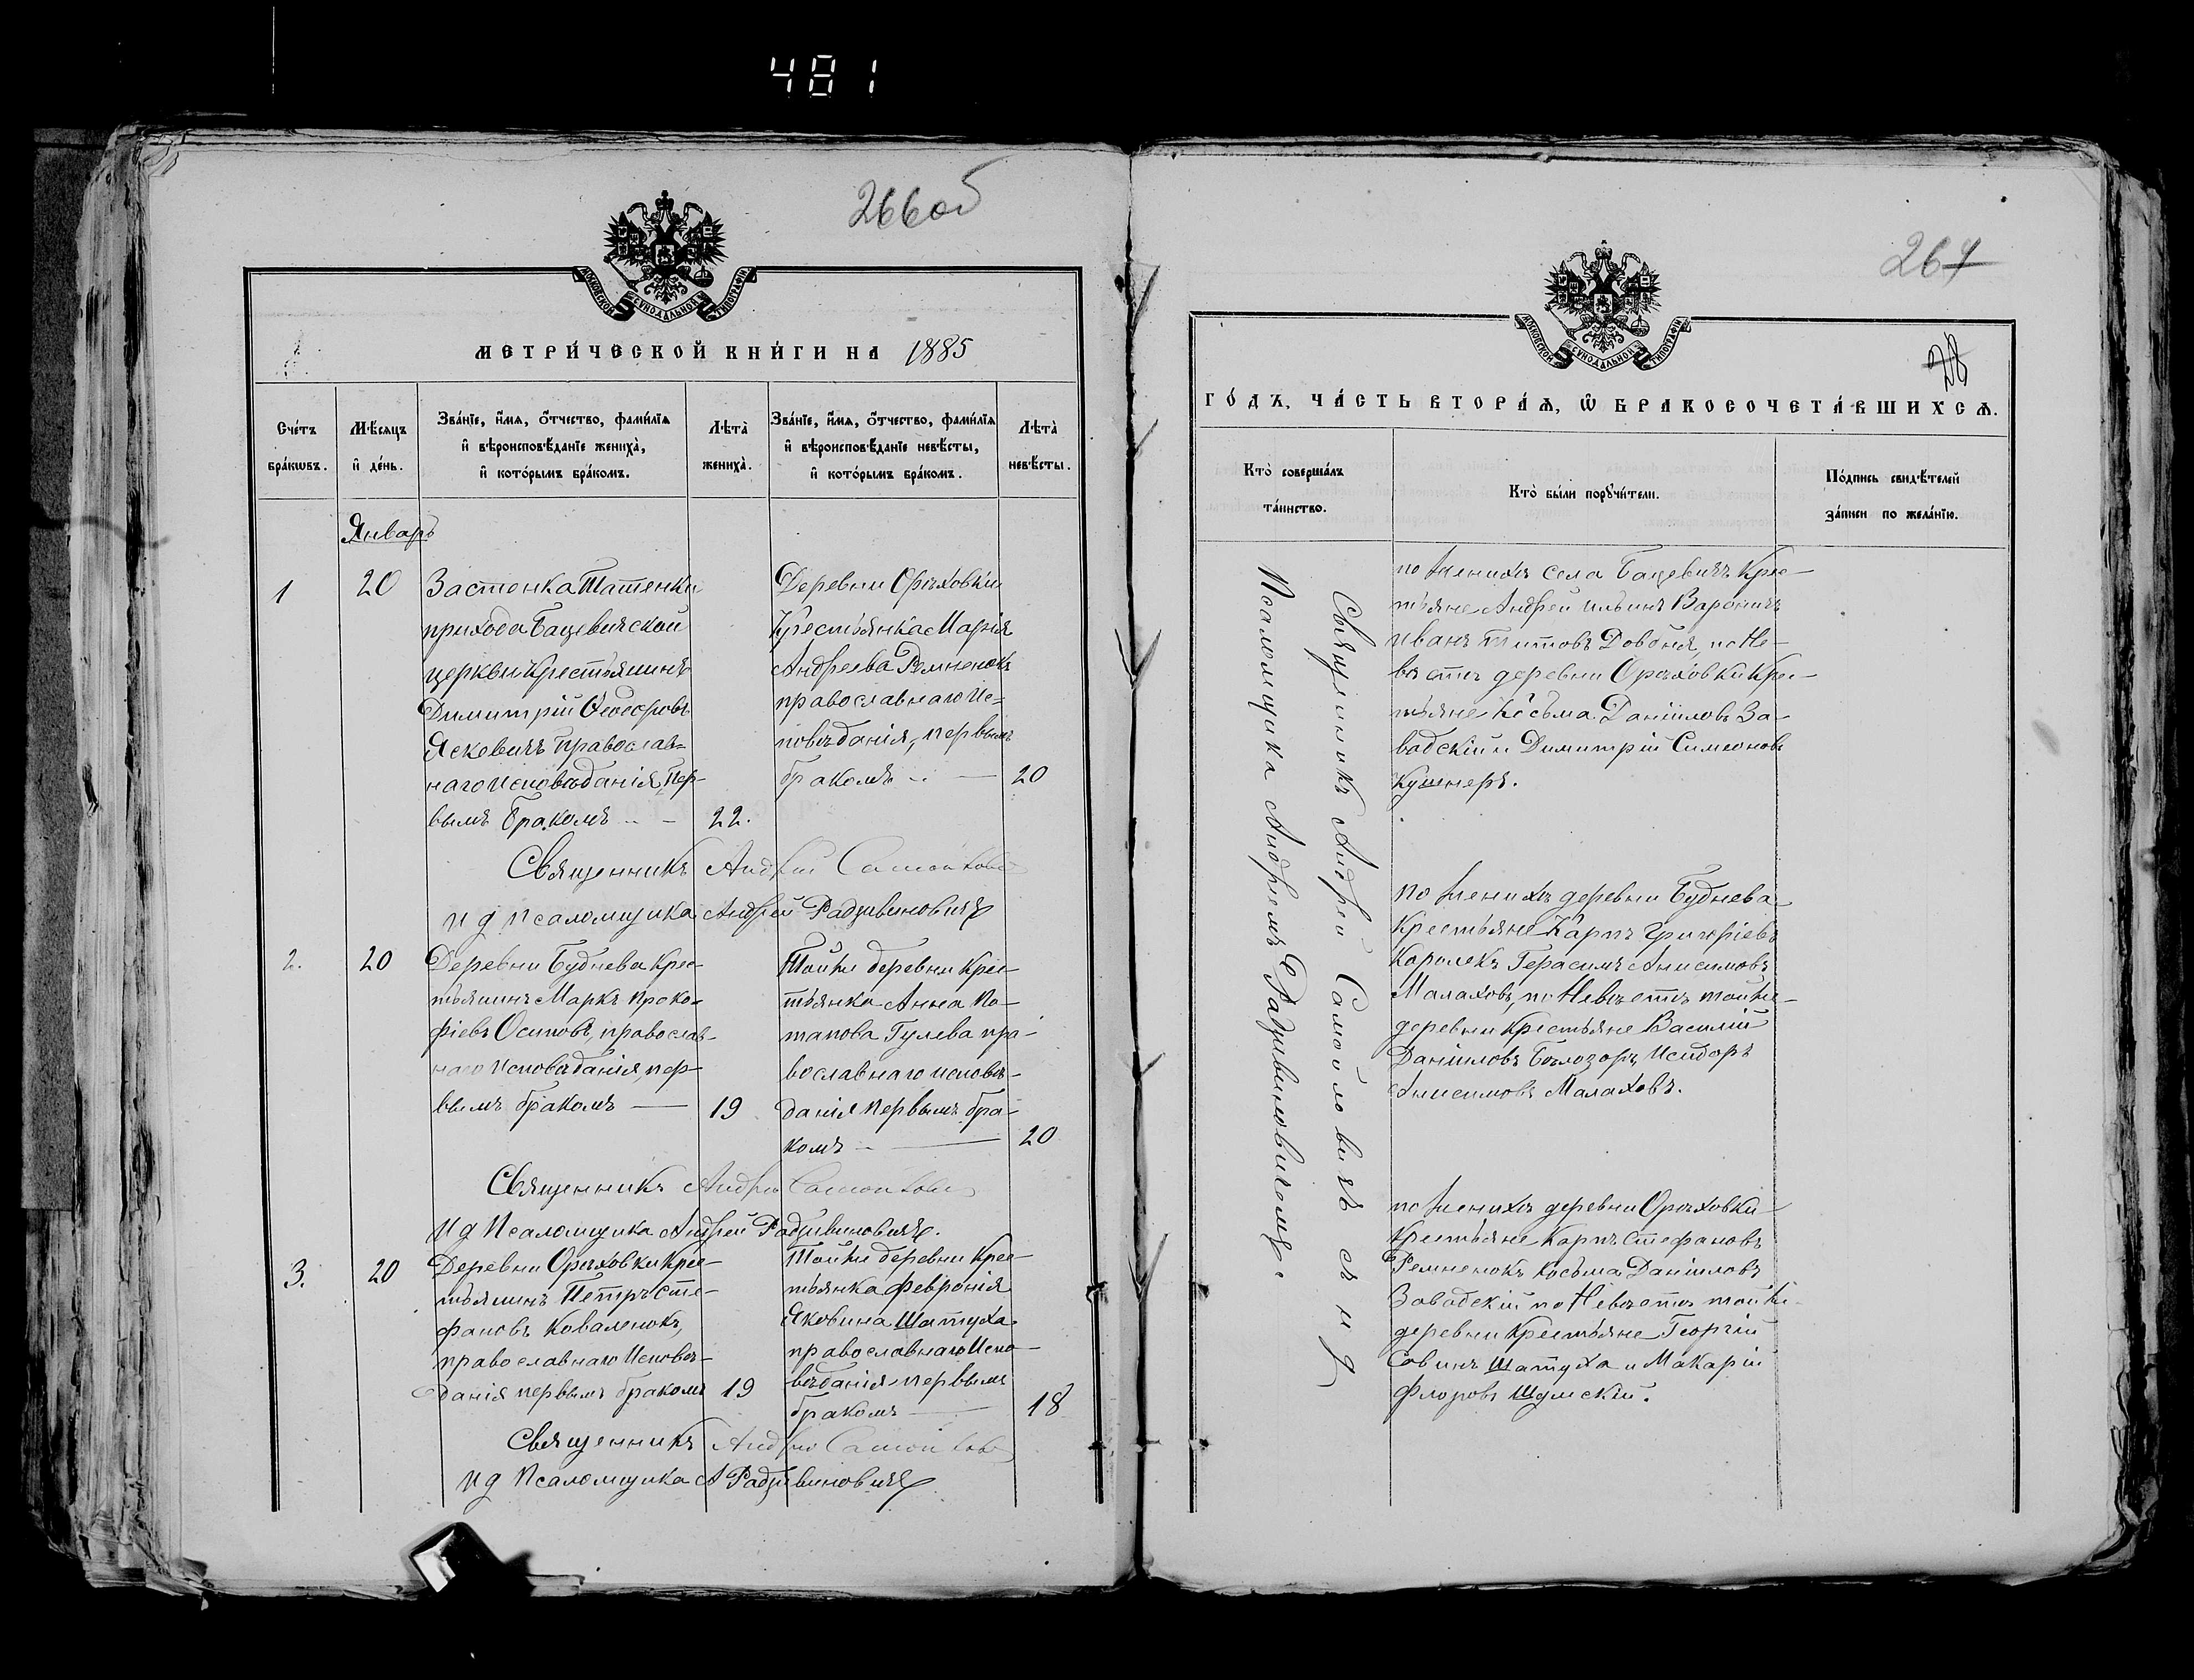 481
266об
МОСКОВСКОЙ СѴНОДАЛЬНОЙ ТИПОГРАФІИ
МЕТРИ́ЧЕСКОЙ КНИ́ГИ НА 1885
Сче́тъ бра́кѡвъ.
Мѣ́сяцъ и҆ де́нь.
Зва́нїе, и҆́мѧ, ѻ҆́тчество, фами́лїѧ и҆ вѣроисповѣ́данїе жениха̀, и҆ кото́рымъ бра́комъ.
Лѣ́та̀ жениха̀.
Зва́нїе, и҆́мѧ, ѻ҆́тчество, фами́лїѧ и҆ вѣроисповѣ́данїе невѣ́сты, и҆ кото́рымъ бра́комъ.
Лѣ́та̀ невѣ́сты.
Январь
1
20
Застенка Шатенки
прихода Бацевичской
церкви Крестьянинъ
Димитрій Ѳеодоровъ
Яскевичъ православ=
наго исповѣданія, пер-
вымъ бракомъ
22.
Деревни Орѣховки
Крестьянка Марія
Андреева Ремненокъ
православнаго ис=
повѣданія, первымъ
бракомъ
20
Священникъ Андрей Самойлович
И д Псаломщика Андрей Радзивиновичъ
2.
20
Деревни Буднева Крес-
тьянинъ Маркъ Проко-
фіевъ Осиповъ, православ-
наго исповѣданія, пер-
вымъ бракомъ
19
Той же деревни Крес-
тьянка Анна По-
тапова Гулева пра-
вославнаго исповѣ-
данія первымъ бра-
комъ
20
Священникъ Андрей Самойлович
И д Псаломщика Андрей Радзивиновичъ.
3.
20
Деревни Орѣховки Крес-
тьянинъ Петръ Сте-
фановъ Коваленокъ,
православнаго исповѣ-
данія первымъ бракомъ
19
Той же деревни Крес-
тьянка Февронія
Яковина Шатуха
православнаго испо-
вѣданія первымъ
бракомъ
18
Священникъ Андрей Самойлович
И д Псаломщика А Радзивиновичъ
267
МОСКОВСКОЙ СѴНОДАЛЬНОЙ ТИПОГРАФІИ
ГО́ДЪ, ЧА́СТЬ ВТОРА́Ѧ, Ѽ БРАКОСОЧЕТА́ВШИХСѦ.
Кто̀ соверша́лъ та́инство.
Кто̀ бы́ли порꙋчи́тели.
По́дпись свидѣ́телей за́писи по жела́нїю.
Священникъ Андрей Самойловичъ съ и д
Псаломщика Андреемъ Радзивиновичемъ.
по Женихѣ села Бацевичъ Крес-
тьяне Андрей Ильинъ Вароничъ
Иванъ Титовъ Довбня, по Не-
вѣстѣ деревни Орѣховки Крес-
тьяне Косьма Даніиловъ За-
вадскій и Димитрій Симеоновъ
Кушнеръ.
По Женихѣ деревни Буднева
Крестьяне Карпъ Григоріевъ
Каролекъ Герасимъ Анисимовъ
Малаховъ, по Невѣстѣ той же
деревни Крестьяне Василій
Даніиловъ Бѣлозоръ, Исидоръ
Анисимовъ Малаховъ.
по Женихѣ деревни Орѣховки
Крестьяне Карпъ Стефановъ
Ремненокъ Косьма Даніиловъ
Завадскій по Невѣстѣ той же
деревни Крестьяне Георгій
Савинъ Шатуха и Макарій
Флоровъ Шумскій.